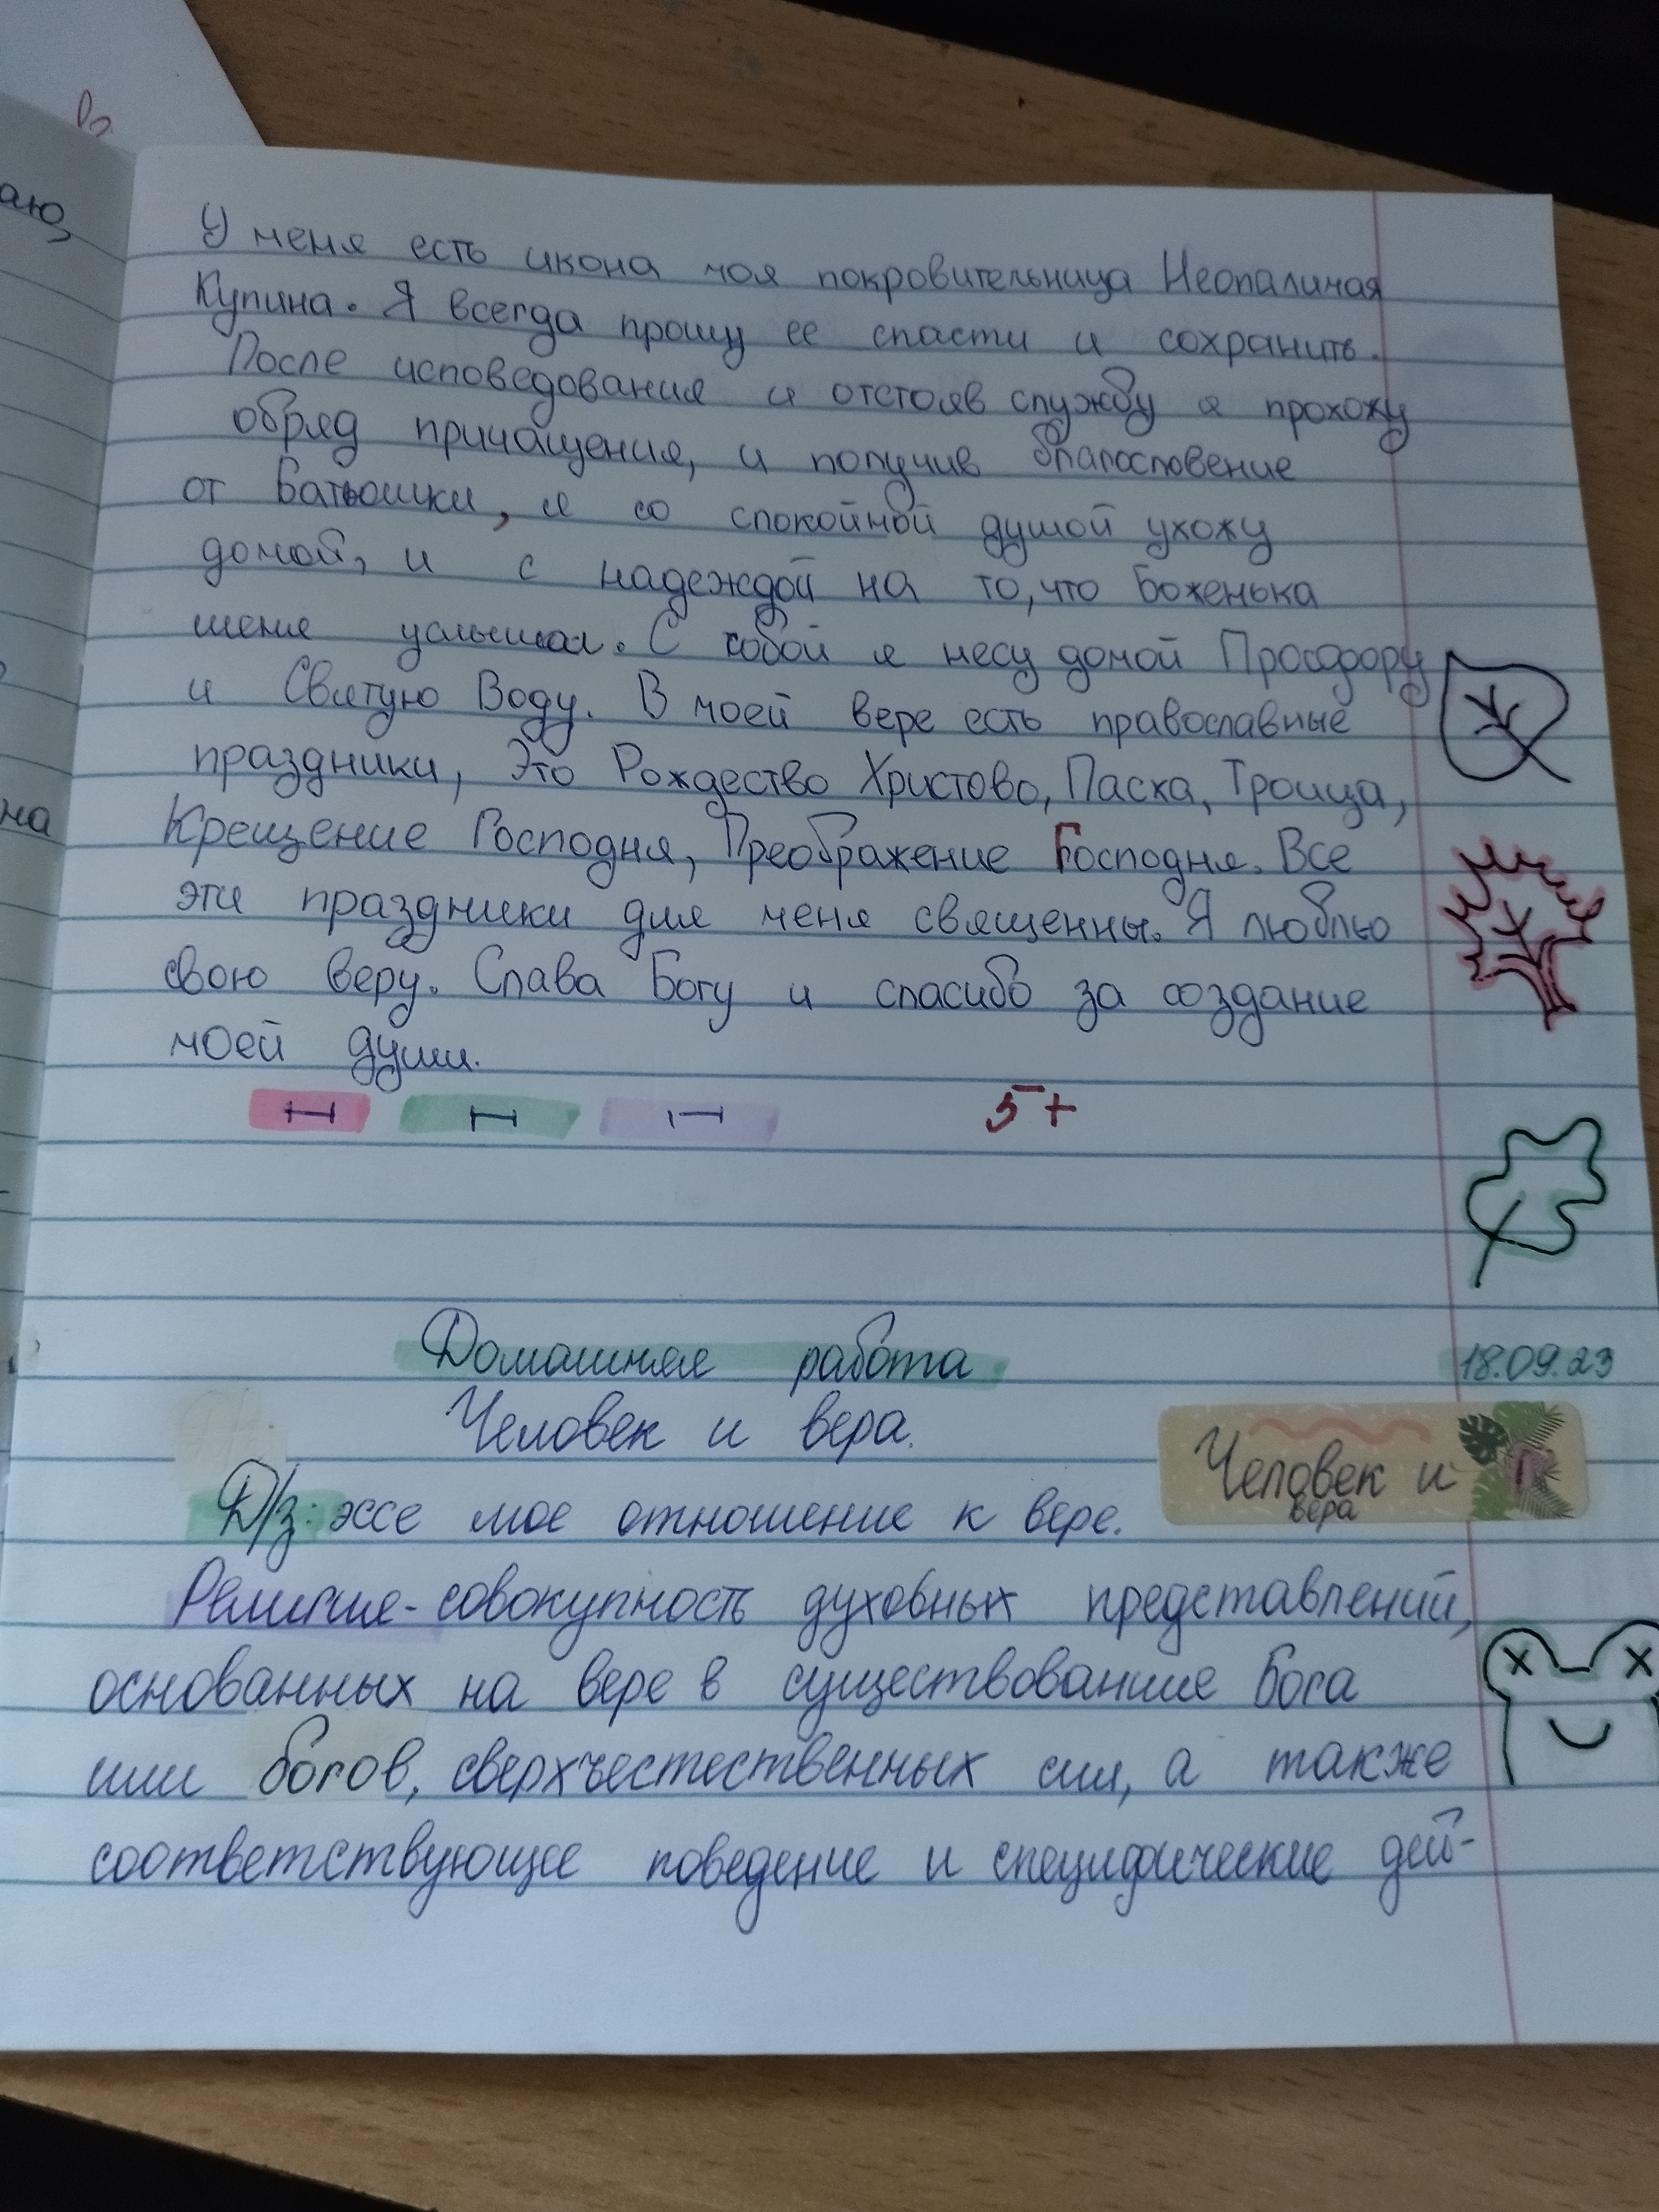 аю,
У меня есть икона моя покровительница Неопалимая
Купина. Я всегда прошу ее спасти и сохранить.
После исповедования и отстояв службу я прохожу
обряд причащения, и получив благословение
от Батюшки, я со спокойной душой ухожу
домой, и с надеждой на то, что Боженька
меня услышал. С собой я несу домой Просфору
и Святую Воду. В моей вере есть православные
праздники, Это Рождество Христово, Паска, Троица,
на
Крещение Господня, Преображение Господня. Все
эти праздники для меня священны. Я люблю
свою веру. Слава Богу и спасибо за создание
моей души.
5+
Домашняя работа
18.09.23
Человек и вера.
Человек и
вера
Д/з: эссе мое отношение к вере.
Религия - совокупность духовных представлений,
основанных на вере в существование Бога
или богов, сверхъестественных сил, а также
соответствующее поведение и специфические дей-